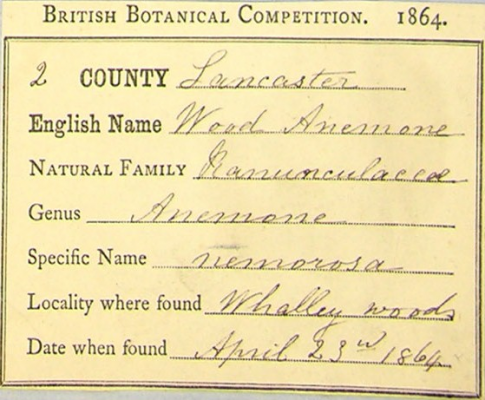 British Botanical Competition. 1864.
2 COUNTY Lancaster
English Name Wood Anemone
Natural Family Ranunculaceæ
Genus Anemone
Specific Name nemorosa
Locality where found Whalley woods
Date when found April 23rd 1864